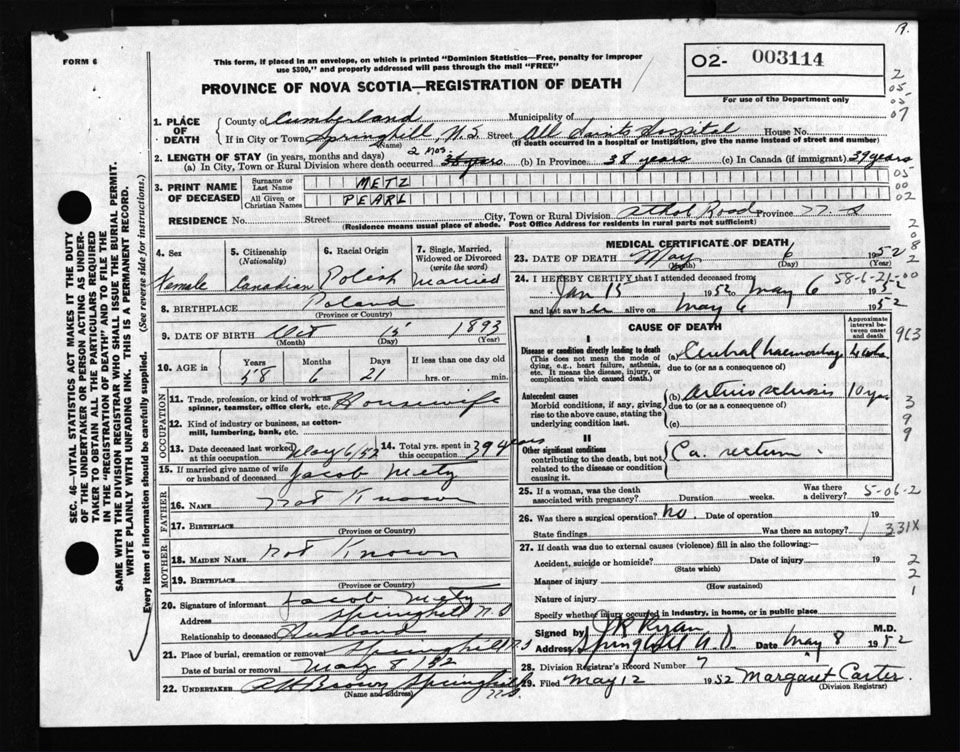 R.
FORM 6
This form, if placed in an envelope, on which is printed "Dominion Statistics—Free, penalty for improper
use $300," and properly addressed will pass through the mail "FREE"
O2- 003114
For use of the Department only
PROVINCE OF NOVA SCOTIA—REGISTRATION OF DEATH
1. PLACE OF DEATH
County of Cumberland Municipality of
If in City or Town Springhill, N.S. Street All Saints Hospital House No.
(Name) (If death occurred in a hospital or institution, give the name instead of street and number)
2. LENGTH OF STAY (in years, months and days)
(a) In City, Town or Rural Division where death occurred 2 mos 38 years (b) In Province 38 years (c) In Canada (if immigrant) 39 years
3. PRINT NAME OF DECEASED
Surname or Last Name METZ
All Given or Christian Names PEARL
RESIDENCE No. Street City, Town or Rural Division Athol Road Province N S
(Residence means usual place of abode. Post Office Address for residents in rural parts not sufficient)
4. Sex Female
5. Citizenship (Nationality) Canadian
6. Racial Origin Polish
7. Single, Married, Widowed or Divorced (write the word) Married
8. BIRTHPLACE Poland
(Province or Country)
9. DATE OF BIRTH Oct 15 1893
(Month) (Day) (Year)
10. AGE in Years Months Days If less than one day old
58 6 21 hrs. or min.
OCCUPATION
11. Trade, profession, or kind of work as spinner, teamster, office clerk, etc. Housewife
12. Kind of industry or business, as cotton-mill, lumbering, bank, etc.
13. Date deceased last worked at this occupation May 6/52
14. Total yrs. spent in this occupation 39 years
15. If married give name of wife or husband of deceased Jacob Metz
FATHER
16. NAME Not Known
17. BIRTHPLACE
(Province or Country)
MOTHER
18. MAIDEN NAME Not Known
19. BIRTHPLACE
(Province or Country)
20. Signature of informant Jacob Metz
Address Springhill N.S
Relationship to deceased Husband
21. Place of burial, cremation or removal Springhill N S
Date of burial or removal May 8 1952
22. UNDERTAKER A H Brown Springhill N.S.
(Name and address)
MEDICAL CERTIFICATE OF DEATH
23. DATE OF DEATH May 6 1952
(Month) (Day)
24. I HEREBY CERTIFY that I attended deceased from 58-6-21-00
Jan 15 1952 to May 6 1952
and last saw her alive on May 6 1952
CAUSE OF DEATH
Approximate interval between onset and death
I
Disease or condition directly leading to death
(This does not mean the mode of dying, e.g., heart failure, asthenia, etc. It means the disease, injury, or complication which caused death.)
(a) Cerebral haemorrhage
due to (or as a consequence of)
Antecedent causes
Morbid conditions, if any, giving rise to the above cause, stating the underlying condition last.
(b) Arteriosclerosis 10 yrs
due to (or as a consequence of)
(c)
II
Other significant conditions
contributing to the death, but not related to the disease or condition causing it.
Ca. rectum.
25. If a woman, was the death associated with pregnancy? Duration weeks. Was there a delivery? 5-06-2
26. Was there a surgical operation? no. Date of operation 19
State findings Was there an autopsy? 331X
27. If death was due to external causes (violence) fill in also the following:
Accident, suicide or homicide? Date of injury 19
(State which)
Manner of injury
(How sustained)
Nature of injury
Specify whether injury occurred in industry, in home, or in public place
Signed by J R Ryan M.D.
Address Springhill N.S. Date May 8 1952
28. Division Registrar's Record Number 7
29. Filed May 12 1952 Margaret Carter.
(Division Registrar)
SEC. 46—VITAL STATISTICS ACT MAKES IT THE DUTY
OF THE UNDERTAKER OR PERSON ACTING AS UNDER-
TAKER TO OBTAIN ALL THE PARTICULARS REQUIRED
IN THE "REGISTRATION OF DEATH" AND TO FILE THE
SAME WITH THE DIVISION REGISTRAR WHO SHALL ISSUE THE BURIAL PERMIT.
WRITE PLAINLY WITH UNFADING INK. THIS IS A PERMANENT RECORD.
Every item of information should be carefully supplied. (See reverse side for instructions.)
2
05
05
07
05
00
02
2
0
8
2
2
963
3
9
9
2
2
1